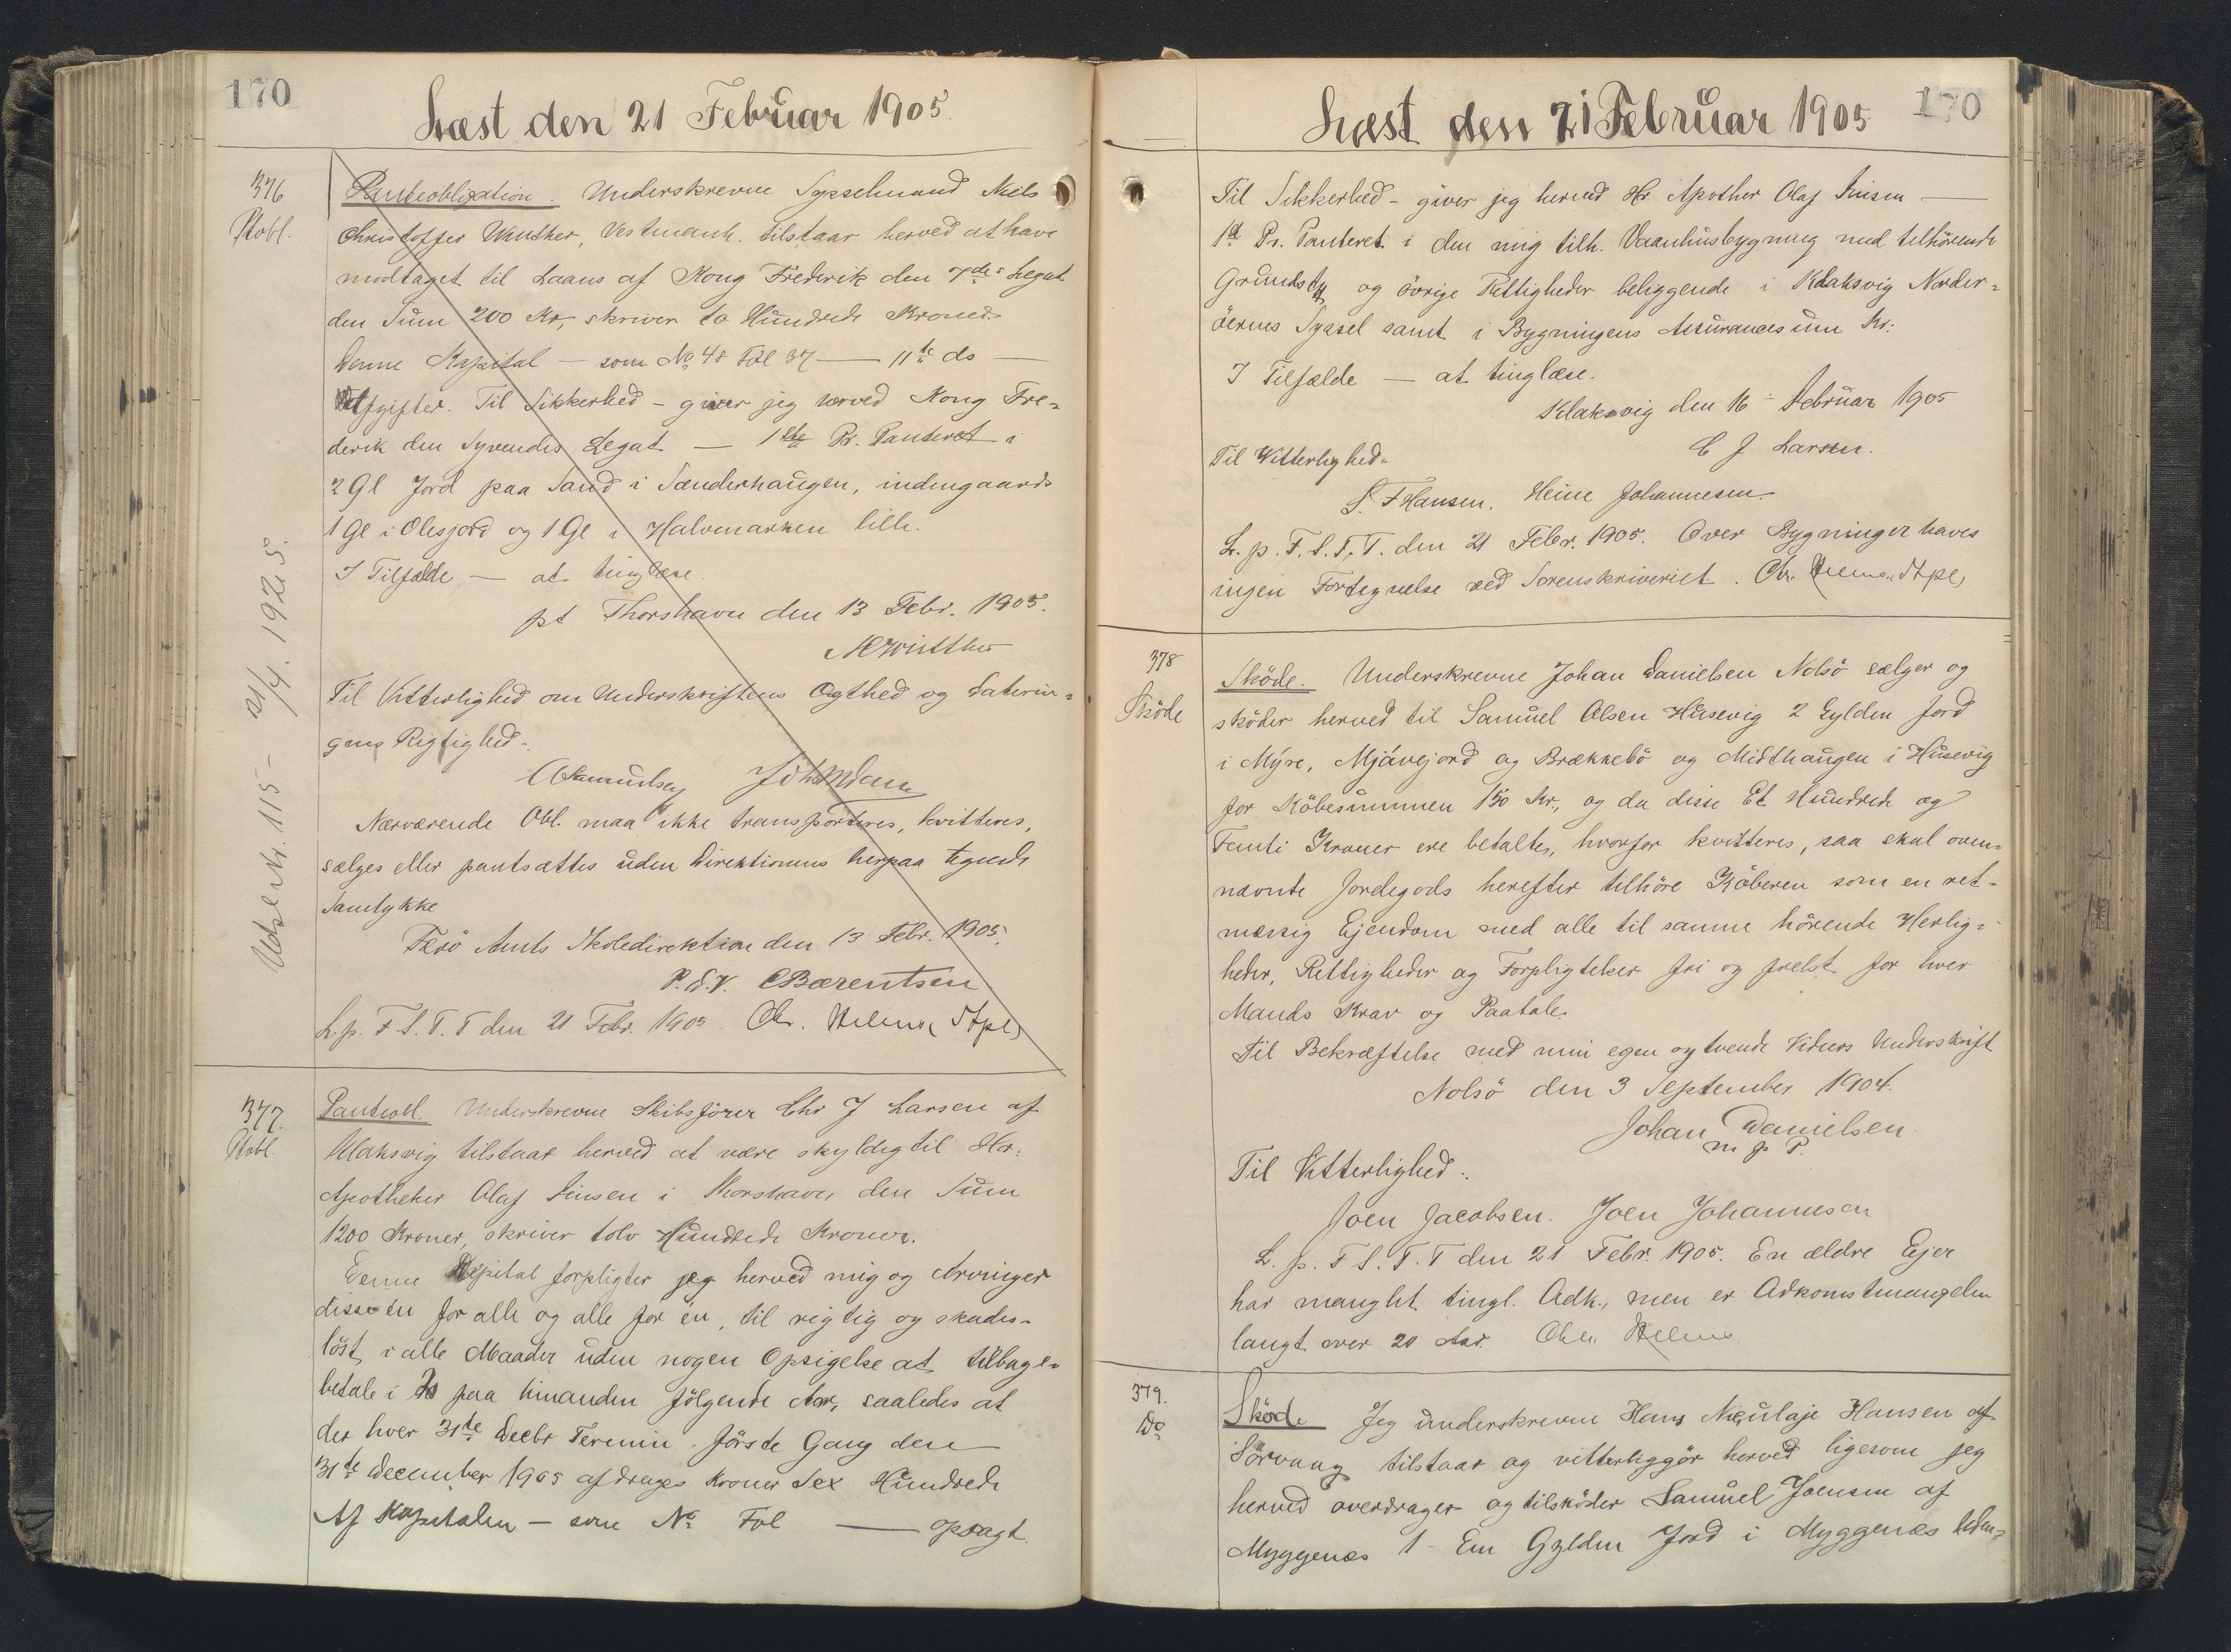 170
Læst den 21 Februar 1905.
376
Ptobl.
Panteobligation. Underskrevne Sysselmand Niels
Christoffer Winther, Vestmanh. tilstaar herved at have
modtaget til Laans af Kong Frederik den 7des Legat
den Sum 200 Kr, skriver to Hundrede Kroner.
Denne Kapital — som No 48 Fol 37 — 11te do —
Afgifter. Til Sikkerhed - giver jeg herved Kong Fre=
derik den Syvendes Legat — 1ste Pr. Panteret i
2 Gl Jord paa Sand i Sønderhaugen, indengaards
1 Gl i Olesjord og 1 Gl i Halvmarken tilh.
I Tilfælde — at tinglæse.
pt Thorshavn den 13 Febr. 1905.
NC Winther
Til Vitterlighed om Underskriftens Ægthed og Daterin=
gens Rigtighed.
Nærværende Obl. maa ikke transporteres, kvitteres,
sælges eller pantsættes uden Direktionens herpaa tegnede
Samtykke
Færö Amts Skoledirektion den 13 Febr. 1905.
P.D.V. CBærentsen
L.p. F.S.T.T den 21 Febr. 1905. Chr. Helms Stpl,
Udsl. Nr. 115 - 21/4. 1925.
377.
Ptobl.
Panteobl. Underskrevne Skibsförer Chr J Larsen af
Klaksvig tilstaar herved at være skyldig til Hr.
Apotheker Olaf Finsen i Thorshavn den Sum
1200 Kroner, skriver tolv Hundrede Kroner.
Denne Kapital forpligter jeg herved mig og Arvinger
disse én for alle og alle for én, til rigtig og skades-
löst i alle Maader uden nogen Opsigelse at tilbage-
betale i to paa hinanden fölgende Aar, saaledes at
der hver 31te Decbr Termin förste Gang den
31te December 1905 afdrages Kroner Sex Hundrede
Af Kapitalen — som No Fol — opsagt.
170
Læst den 21 Februar 1905
Til Sikkerhed - giver jeg herved Hr. Apother Olaf Finsen —
1st Pr. Panteret i den mig tilh. Vaanhusbygning med tilhörende
Grundsty og övrige Rettigheder beliggende i Klaksvig Norder=
öernes Syssel samt i Bygningens Assurancesum Kr:
I Tilfælde — at tinglæse.
Klaksvig den 16 Februar 1905
C J Larsen.
Til Vitterlighed.
S. F Hansen. Heine Johannesen.
L. p. F. S. T. T. den 21 Febr. 1905. Over Bygninger haves
ingen Fortegnelse ved Sorenskriveriet. Chr. Helms Stpl,
378
Sköde
Sköde. Underskrevne Johan Danielsen Nolsö sælger og
sköder herved til Samuel Olsen Husevig 2 Gylden Jord
i Mýre, Mjávejord og Brækkebö og Midthaugen i Husevig
for Köbesummen 150 Kr., og da disse Et Hundrede og
Femti Kroner ere betalte, hvorfor kvitteres, saa skal oven=
nævnte Jordegods herefter tilhöre Köberen som en ret-
mæssig Ejendom med alle til samme hörende Herlig=
heder, Rettigheder og Forpligtelser fri og frelst for hver
Mands Krav og Paatale.
Til Bekræftelse med min egen og tvende Vidners Underskrift
Nolsö den 3 September 1904.
Johan Danielsen
m p P.
Til Vitterlighed:
Joen Jacobsen. Joen Johannesen
L. p. F S. T. T den 21 Febr. 1905. En ældre Ejer
har manglet tingl. Adk., men er Adkomstmangelen
langt over 20 Aar. Chr. Helms
379.
Do
Sköde Jeg underskrevne Hans Niculaje Hansen af
Sörvaag tilstaar og vitterliggör herved ligesom jeg
herved overdrager og tilsköder Samuel Joensen af
Myggenæs 1 - Een Gylden Jord i Myggenæs